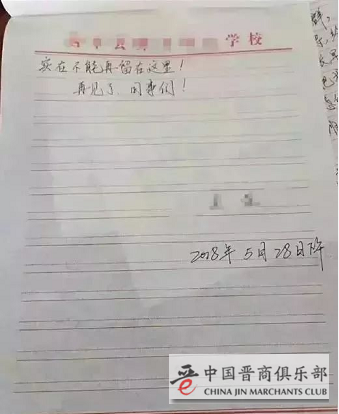 学校
实在不能再留在这里！
再见了，同事们！
2018年5月28日晚
晋 中国晋商俱乐部
CHINA JIN MERCHANTS CLUB